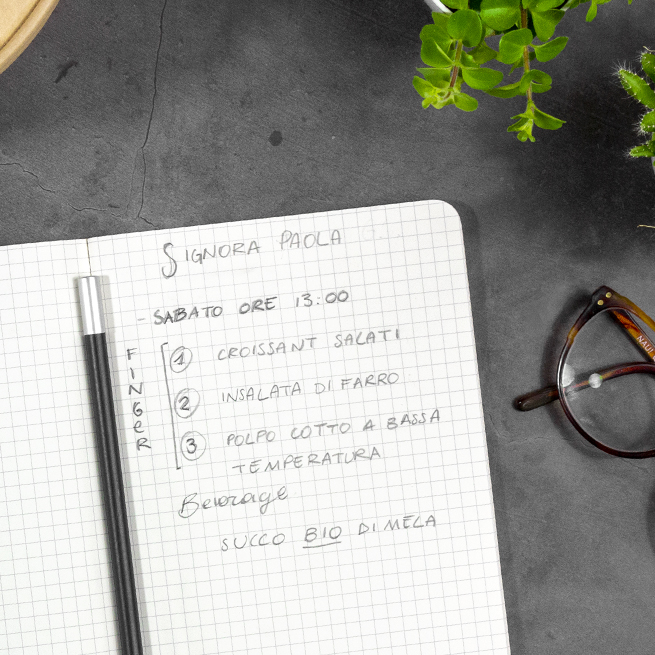 SIGNORA PAOLA
- SABATO ORE 13:00
FINGER
1 CROISSANT SALATI
2 INSALATA DI FARRO
3 POLPO COTTO A BASSA
TEMPERATURA
Beverage
SUCCO BIO DI MELA